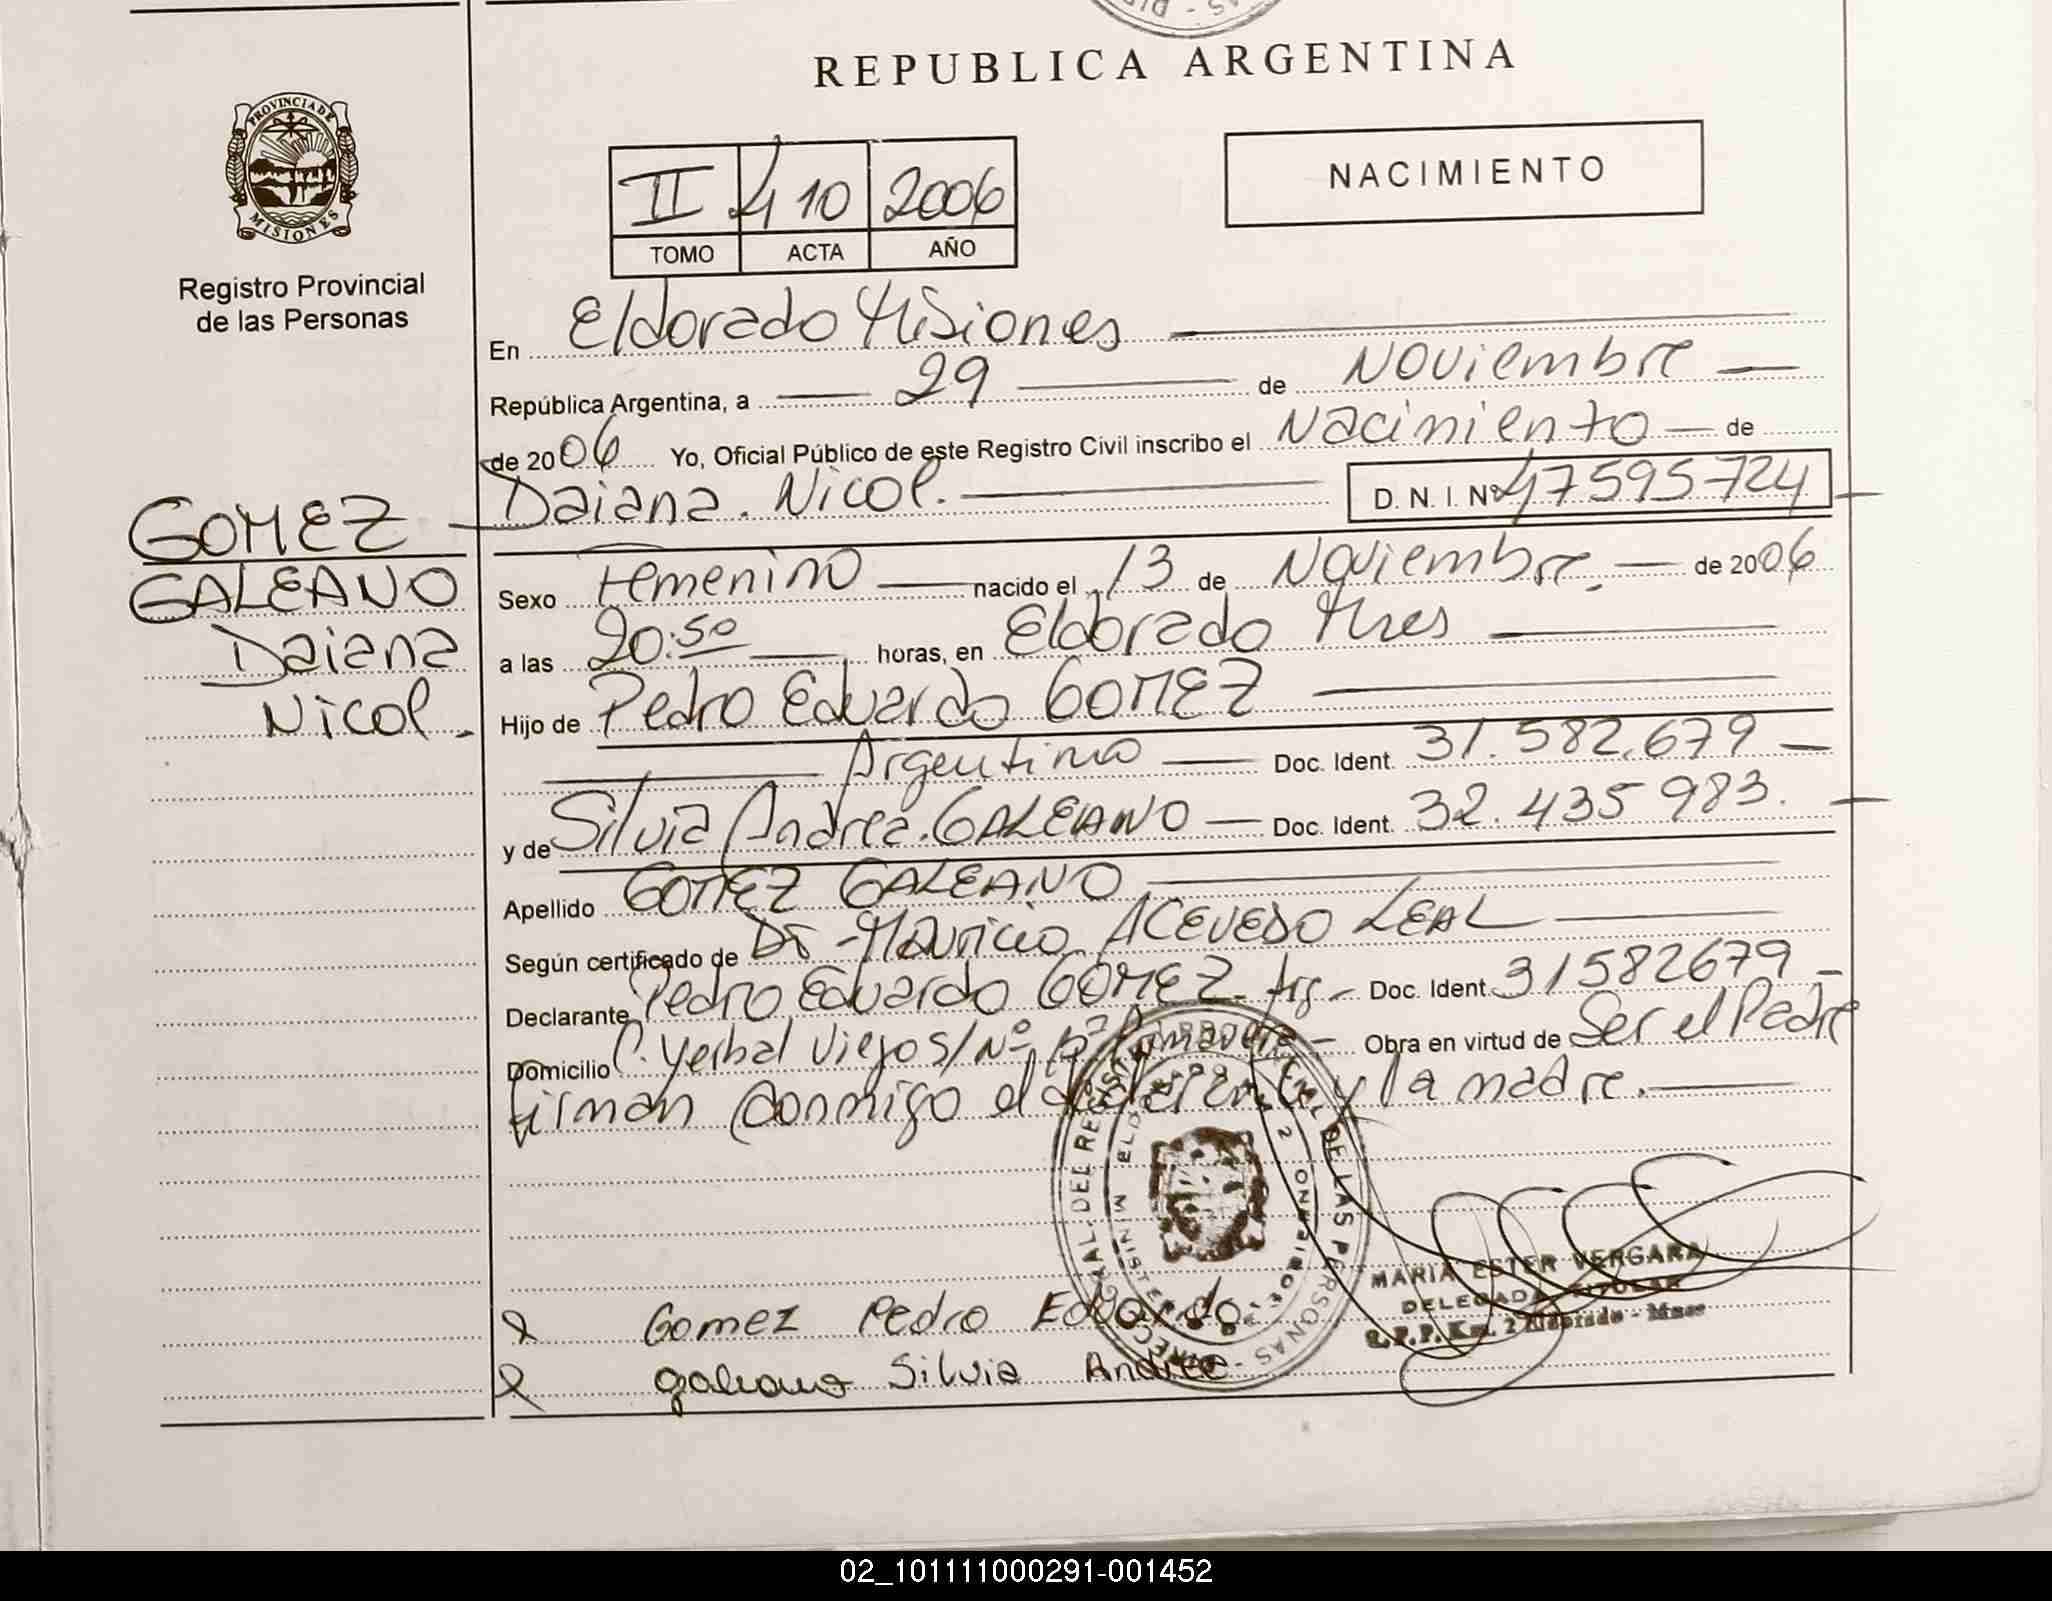 REPUBLICA ARGENTINA
PROVINCIA DE MISIONES
Registro Provincial
de las Personas
II 410 2006
TOMO ACTA AÑO
NACIMIENTO
En Eldorado Misiones
República Argentina, a 29 de Noviembre
de 2006 Yo, Oficial Público de este Registro Civil inscribo el Nacimiento de
Daiana. Nicol. D. N. I. Nº 47595724
GOMEZ
GALEANO
Daiana
Nicol.
Sexo Femenino nacido el 13 de Noviembre. de 2006
a las 20:50 horas, en Eldorado Mnes
Hijo de Pedro Eduardo GOMEZ
Argentino Doc. Ident. 31.582.679
y de Silvia Andrea. GALEANO Doc. Ident. 32.435983.
Apellido GOMEZ GALEANO
Según certificado de Dr Mauricio ACEVEDO LEAL
Declarante Pedro Eduardo GOMEZ Arg Doc. Ident. 31582679
Domicilio C. Yerbal Viejo S/Nº Obra en virtud de Ser el Padre
firman conmigo el declarante y la madre.
MARIA ESTER VERGARA
DELEGADA TITULAR
R.P.P. Km. 2 Eldorado - Mnes
Gomez Pedro Eduardo
galeano Silvia Andrea
02_101111000291-001452